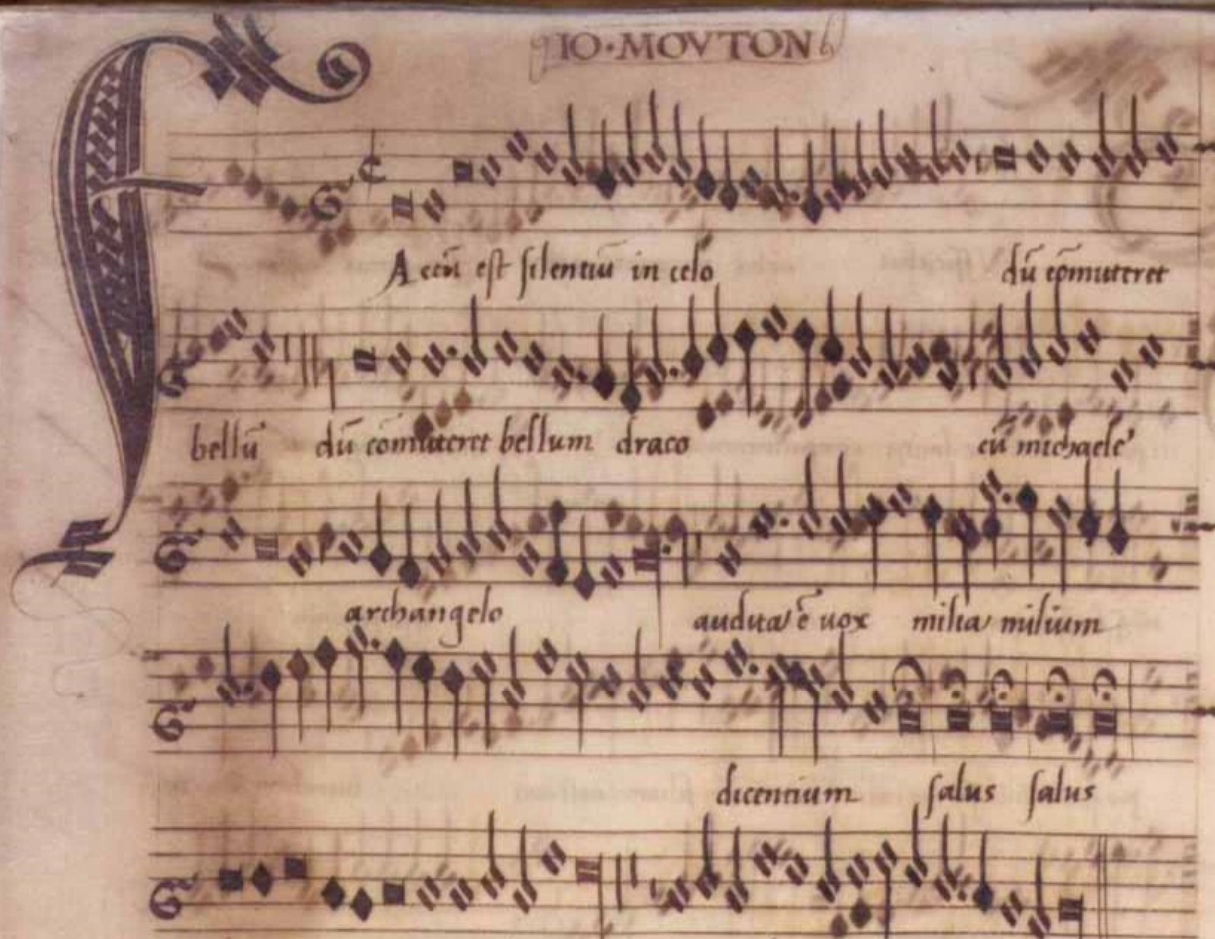 IO·MOVTON
FActū est silentiū in celo dū cōmitteret
bellū dū cōmitteret bellum draco cū michaele
archangelo audita ē uox milia milium
dicentium salus salus